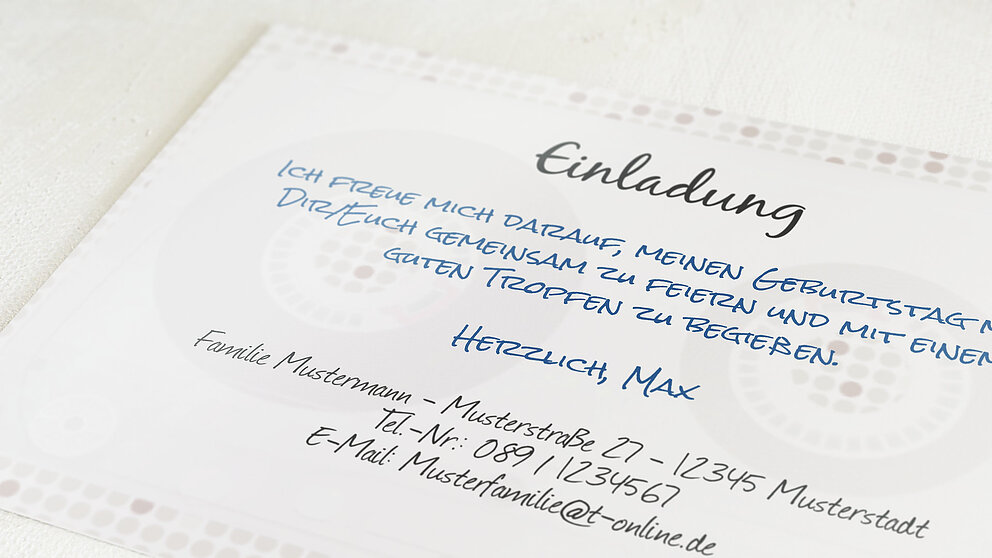 Einladung
Ich freue mich darauf, meinen Geburtstag
Dir/Euch gemeinsam zu feiern und mit einem
guten Tropfen zu begießen.
Herzlich, Max
Familie Mustermann - Musterstraße 27 - 12345 Musterstadt
Tel.-Nr.: 089 / 1234567
E-Mail: Musterfamilie@t-online.de